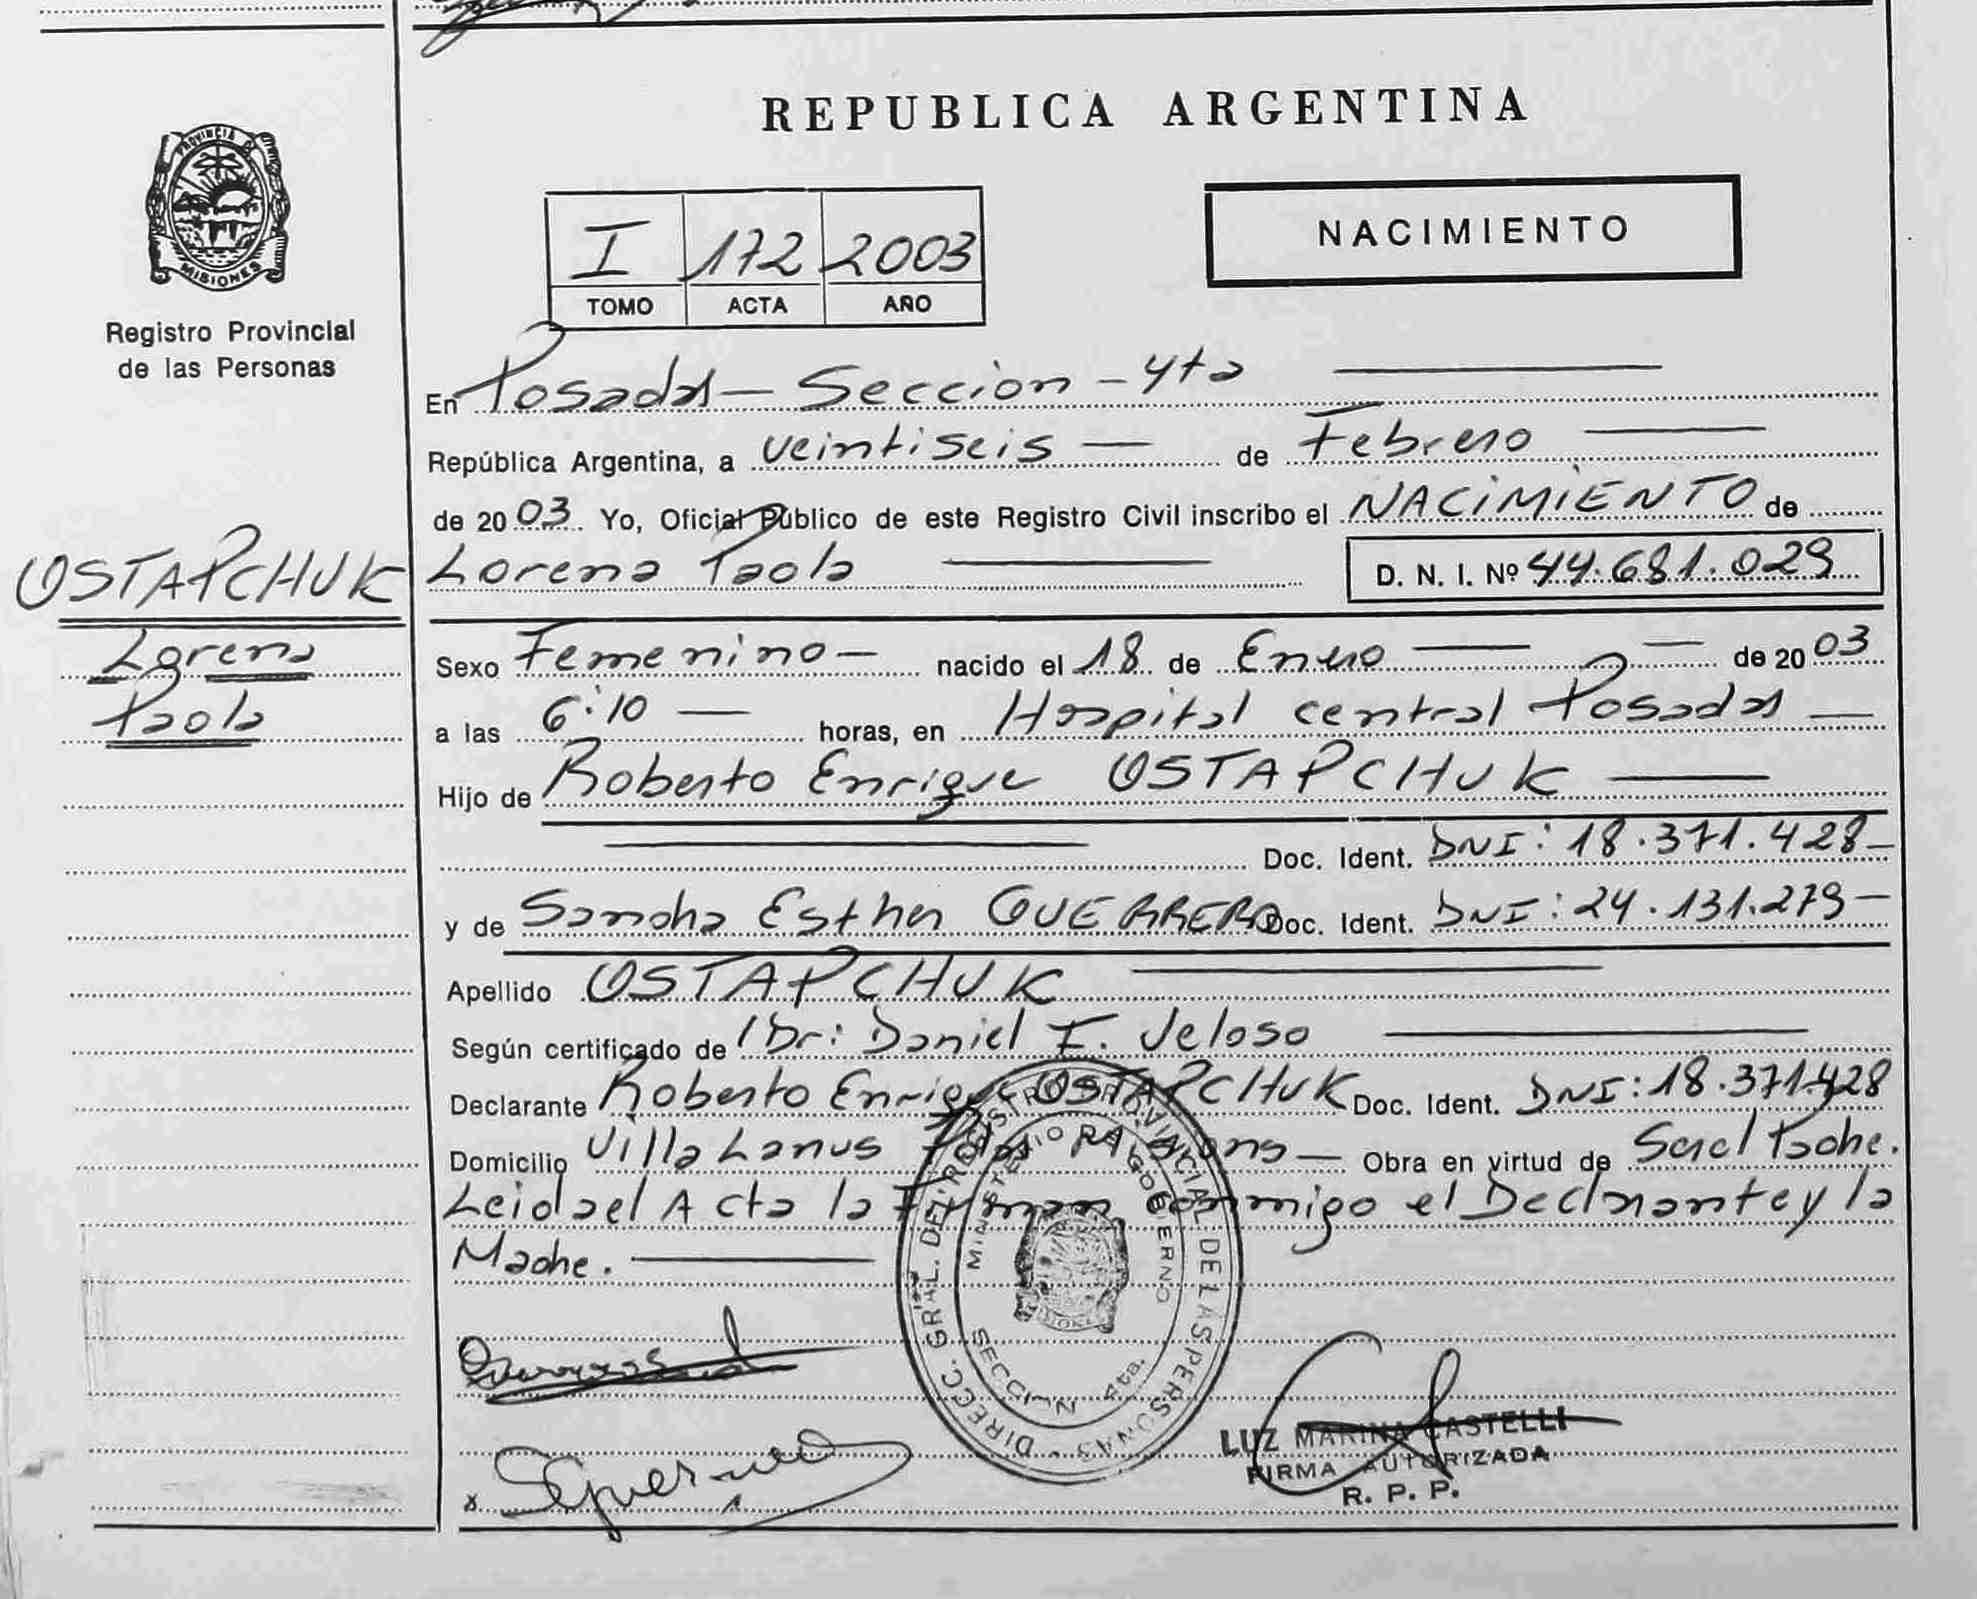 REPUBLICA ARGENTINA
PROVINCIA DE
MISIONES
Registro Provincial
de las Personas
NACIMIENTO
I 172 2003
TOMO ACTA AÑO
En Posadas - Seccion - 4ta
República Argentina, a veintiseis de Febrero
de 2003. Yo, Oficial Público de este Registro Civil inscribo el NACIMIENTO de
Lorena Paola D. N. I. Nº 44.681.029
OSTAPCHUK
Lorena
Paola
Sexo Femenino - nacido el 18 de Enero de 2003
a las 6:10 horas, en Hospital central Posadas
Hijo de Roberto Enrique OSTAPCHUK
Doc. Ident. DNI: 18.371.428
y de Sandra Esther GUERRERO Doc. Ident. DNI: 24.131.279
Apellido OSTAPCHUK
Según certificado de Dr: Daniel E. Veloso
Declarante Roberto Enrique OSTAPCHUK Doc. Ident. DNI: 18.371.428
Domicilio Villa Lanus Obra en virtud de ser el Padre.
Leida el Acta la Firman conmigo el Declarante y la
Madre.
DIRECC. GRAL. DEL REGISTRO PROVINCIAL DE LAS PERSONAS
MINISTERIO GOBIERNO
SECCION 4ta.
SGuerrero
LUZ MARINA CASTELLI
FIRMA AUTORIZADA
R. P. P.